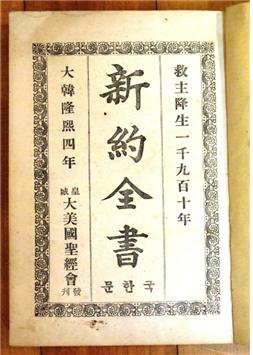 救主降生一千九百十年
新約全書
국한문
大韓隆熙四年
皇城 大美國聖經會 發刊